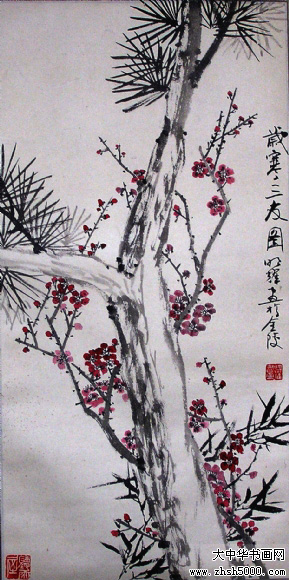 歲寒三友图
明耀画於金陵
大中华书画网
www.zhsh5000.com